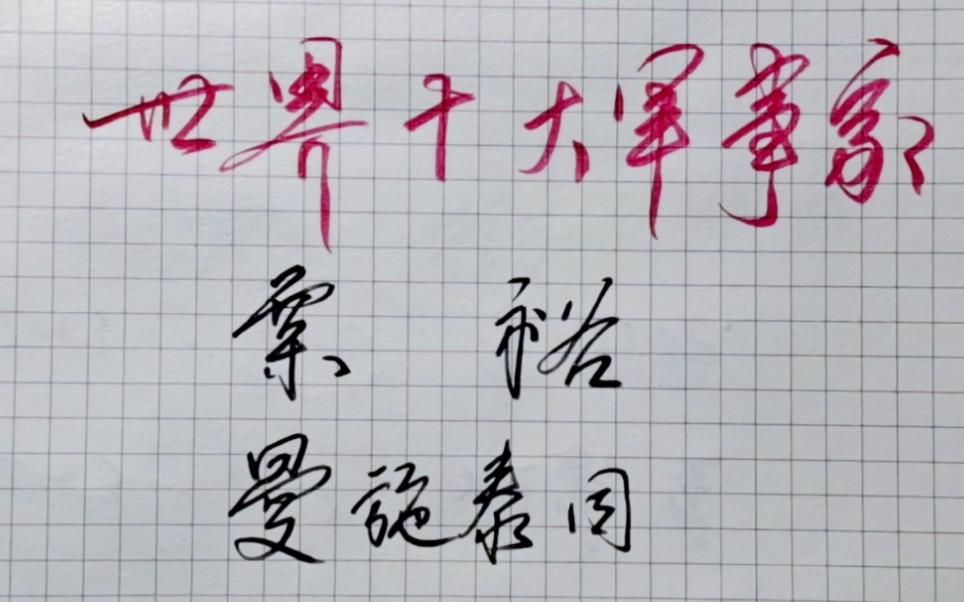 世界十大军事家
粟 裕
曼施泰因